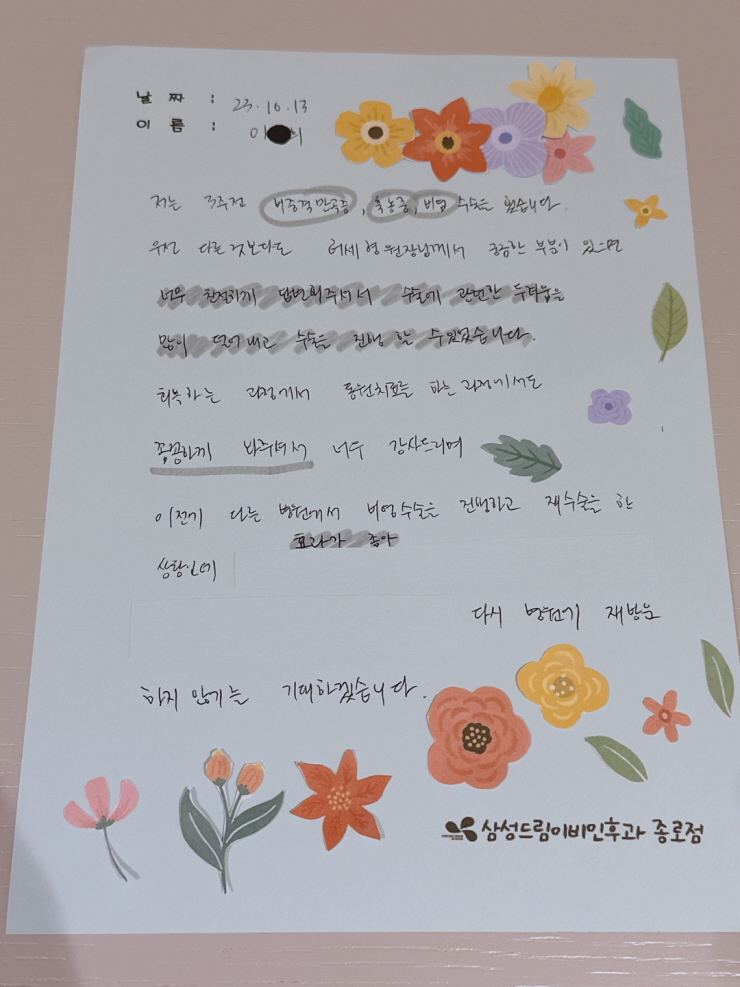 날 짜 : 23.10.13
이 름 : 이 의
저는 3주전 비중격만곡증, 축농증, 비염 수술을 했습니다.
우선 다른것보다도 허세형원장님께서 궁금한 부분이 있으면
너무 친절하게 답변해주셔서 수술에 관련한 두려움을
많이 덜어내고 수술을 진행 할 수있었습니다.
회복하는 과정에서 통원치료를 하는 과정에서도
꼼꼼하게 봐주셔서 너무 감사드리며
이전에 다른 병원에서 비염수술을 진행하고 재수술을 한
효과가 좋아
상황인데
다시 병원에 재방문
하지 않기를 기대하겠습니다.
삼성드림이비인후과 종로점